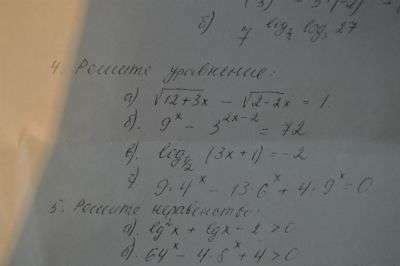 б) 7 log₇ log₃ 27
4. Решите уравнение:
а) √12+3x − √2−2x = 1.
б) 9ˣ − 3²ˣ⁻² = 72
в) log₁/₂ (3x+1) = −2
г) 9·4ˣ − 13·6ˣ + 4·9ˣ = 0.
5. Решите неравенство:
а) lg²x + lgx − 2 > 0
б) 64ˣ − 4·8ˣ + 4 > 0